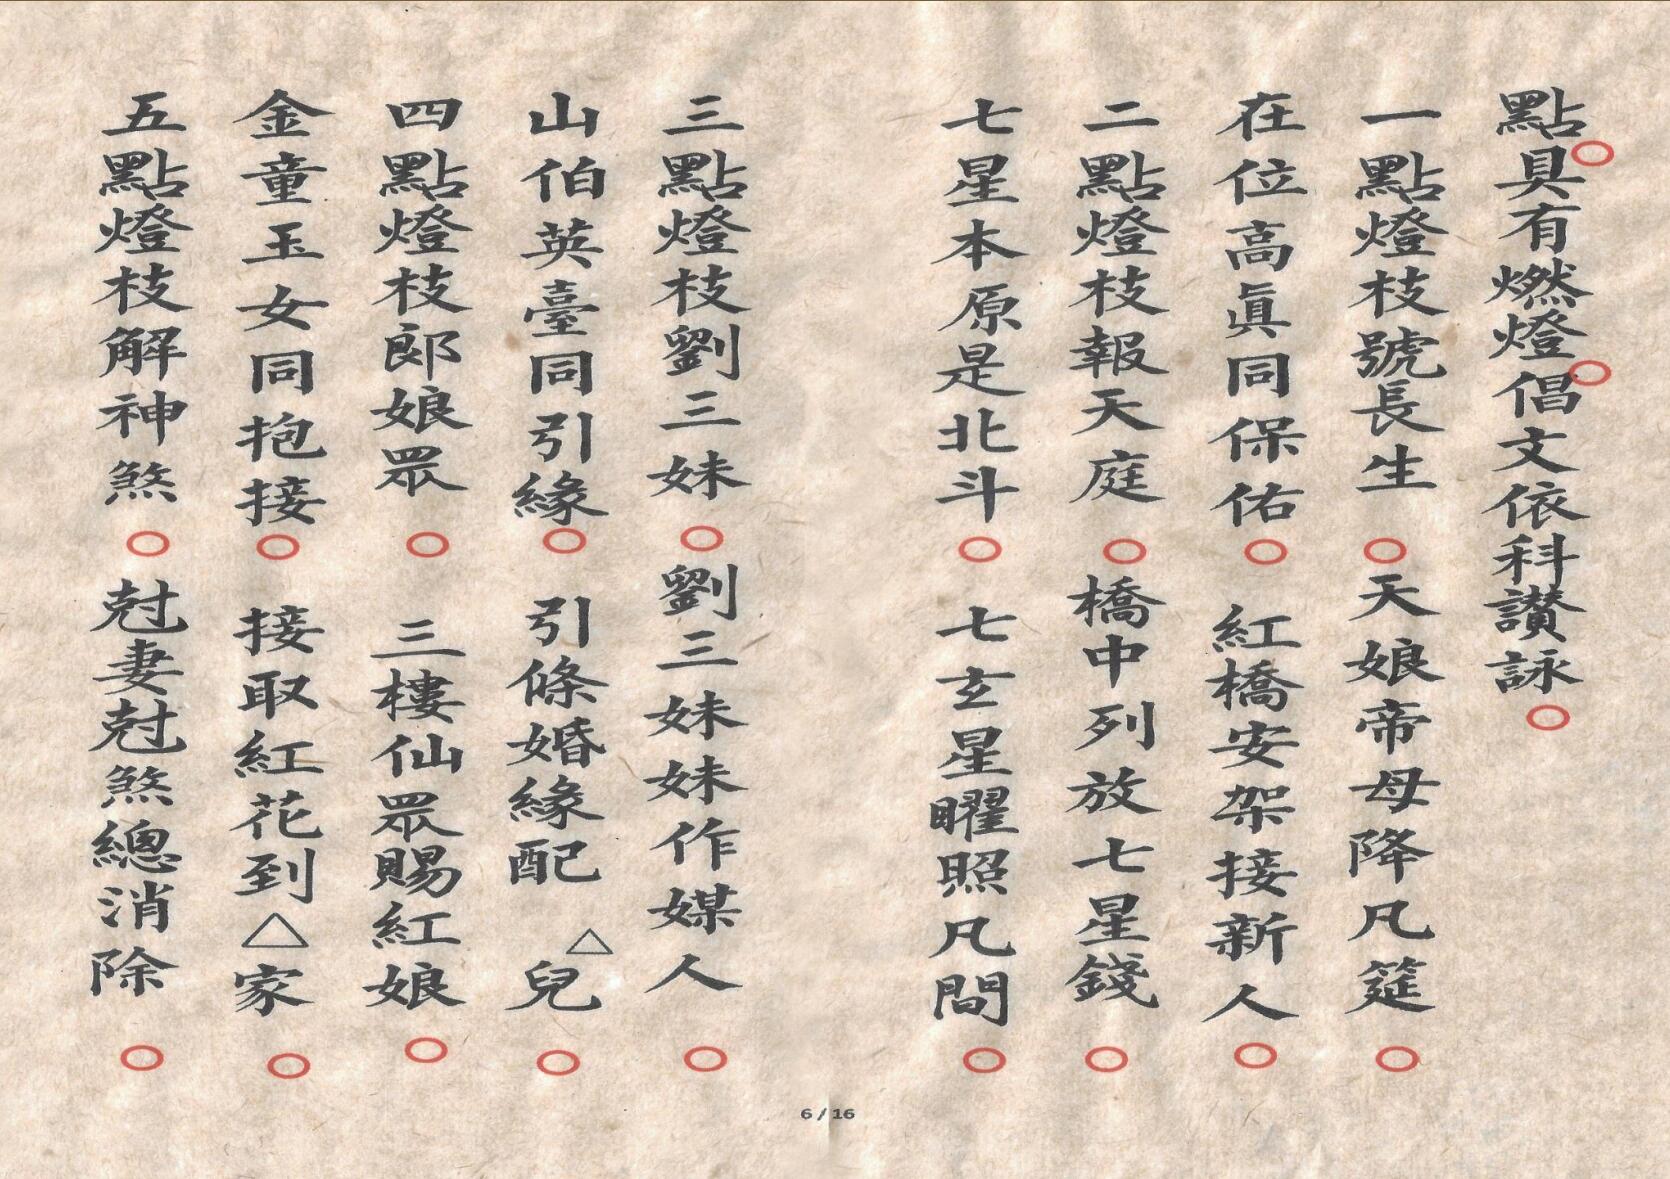 點○具有燃燈○倡文依科讚詠○
一點燈枝號長生○天娘帝母降凡筵○
在位高眞同保佑○紅橋安架接新人○
二點燈枝報天庭○橋中列放七星錢○
七星本原是北斗○七玄星曜照凡間○
三點燈枝劉三妹○劉三妹妹作媒人○
山伯英臺同引緣○引條婚緣配△兒○
四點燈枝郎娘眾○三樓仙眾賜紅娘○
金童玉女同抱接○接取紅花到△家○
五點燈枝解神煞○尅妻尅煞總消除○
6 / 16